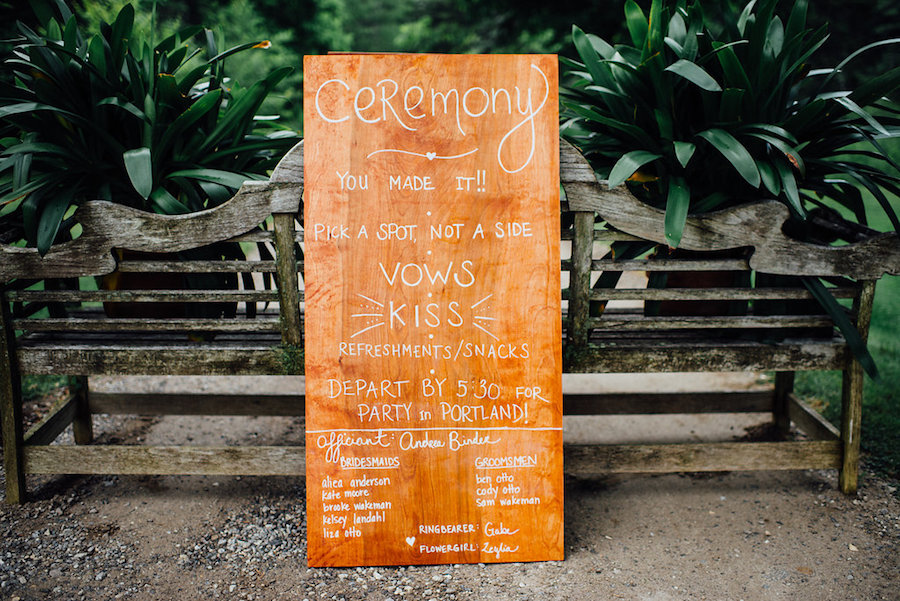 CeReMONY
YOU MADE IT!!
PICK A SPOT, NOT A SIDE
VOWS
KISS
REFRESHMENTS/SNACKS
DEPART BY 5:30 FOR
PARTY in PORTLAND!
officiant: Andrea Binder
BRIDESMAIDS
alica anderson
kate moore
brooke wakeman
kelsey landahl
liza otto
GROOMSMEN
ben otto
cody otto
sam wakeman
RINGBEARER: Gabe
FLOWERGIRL: Zeglia